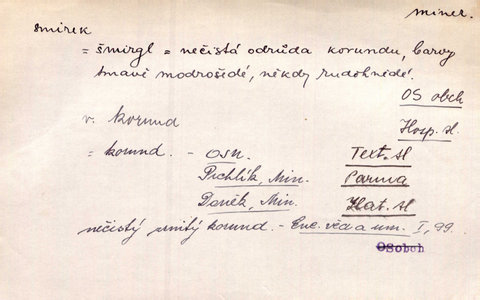 miner.
smirek
= šmirgl = nečistá odrůda korundu, barvy
tmavě modrošedé, někdy rudohnědé.
OS obch
v. korund
Hosp. sl.
= korund. - OSN. Text. sl
Pichlík, Min. Parma
Daněk, Min. Hat. sl
nečistý zrnitý korund. - Enc. věd a um. I, 99.
OSobch